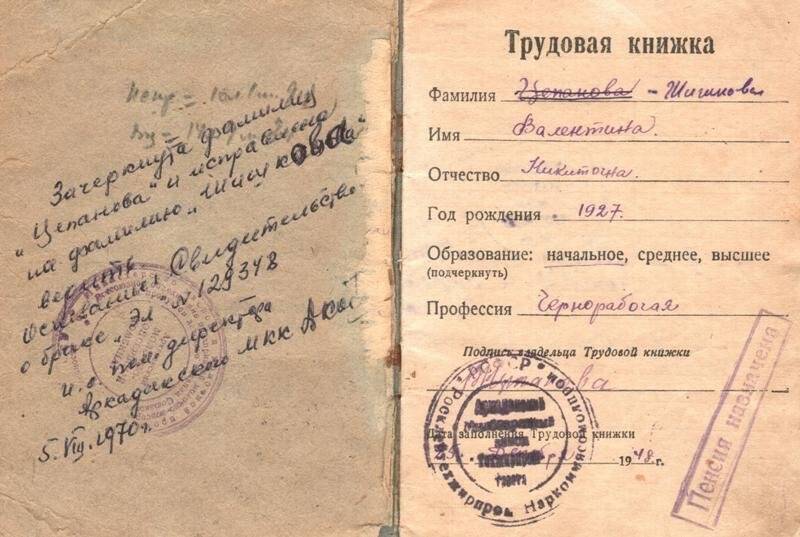 Зачеркнута фамилия
"Цепанова" и исправлена
на фамилию "Шишкова"
Основание Свидетельство
о браке ЭЛ N 129348
и.о. пом. директора
Аркадакского МКК
5.VIII.1970 г.
Трудовая книжка
Фамилия Цепанова - Шишкова
Имя Валентина.
Отчество Никитична.
Год рождения 1927.
Образование: начальное, среднее, высшее
(подчеркнуть)
Профессия Чернорабочая
Подпись владельца Трудовой книжки
Дата заполнения Трудовой книжки
1948 г.
РСФСР
Наркоммясомолпром
Пенсия назначена